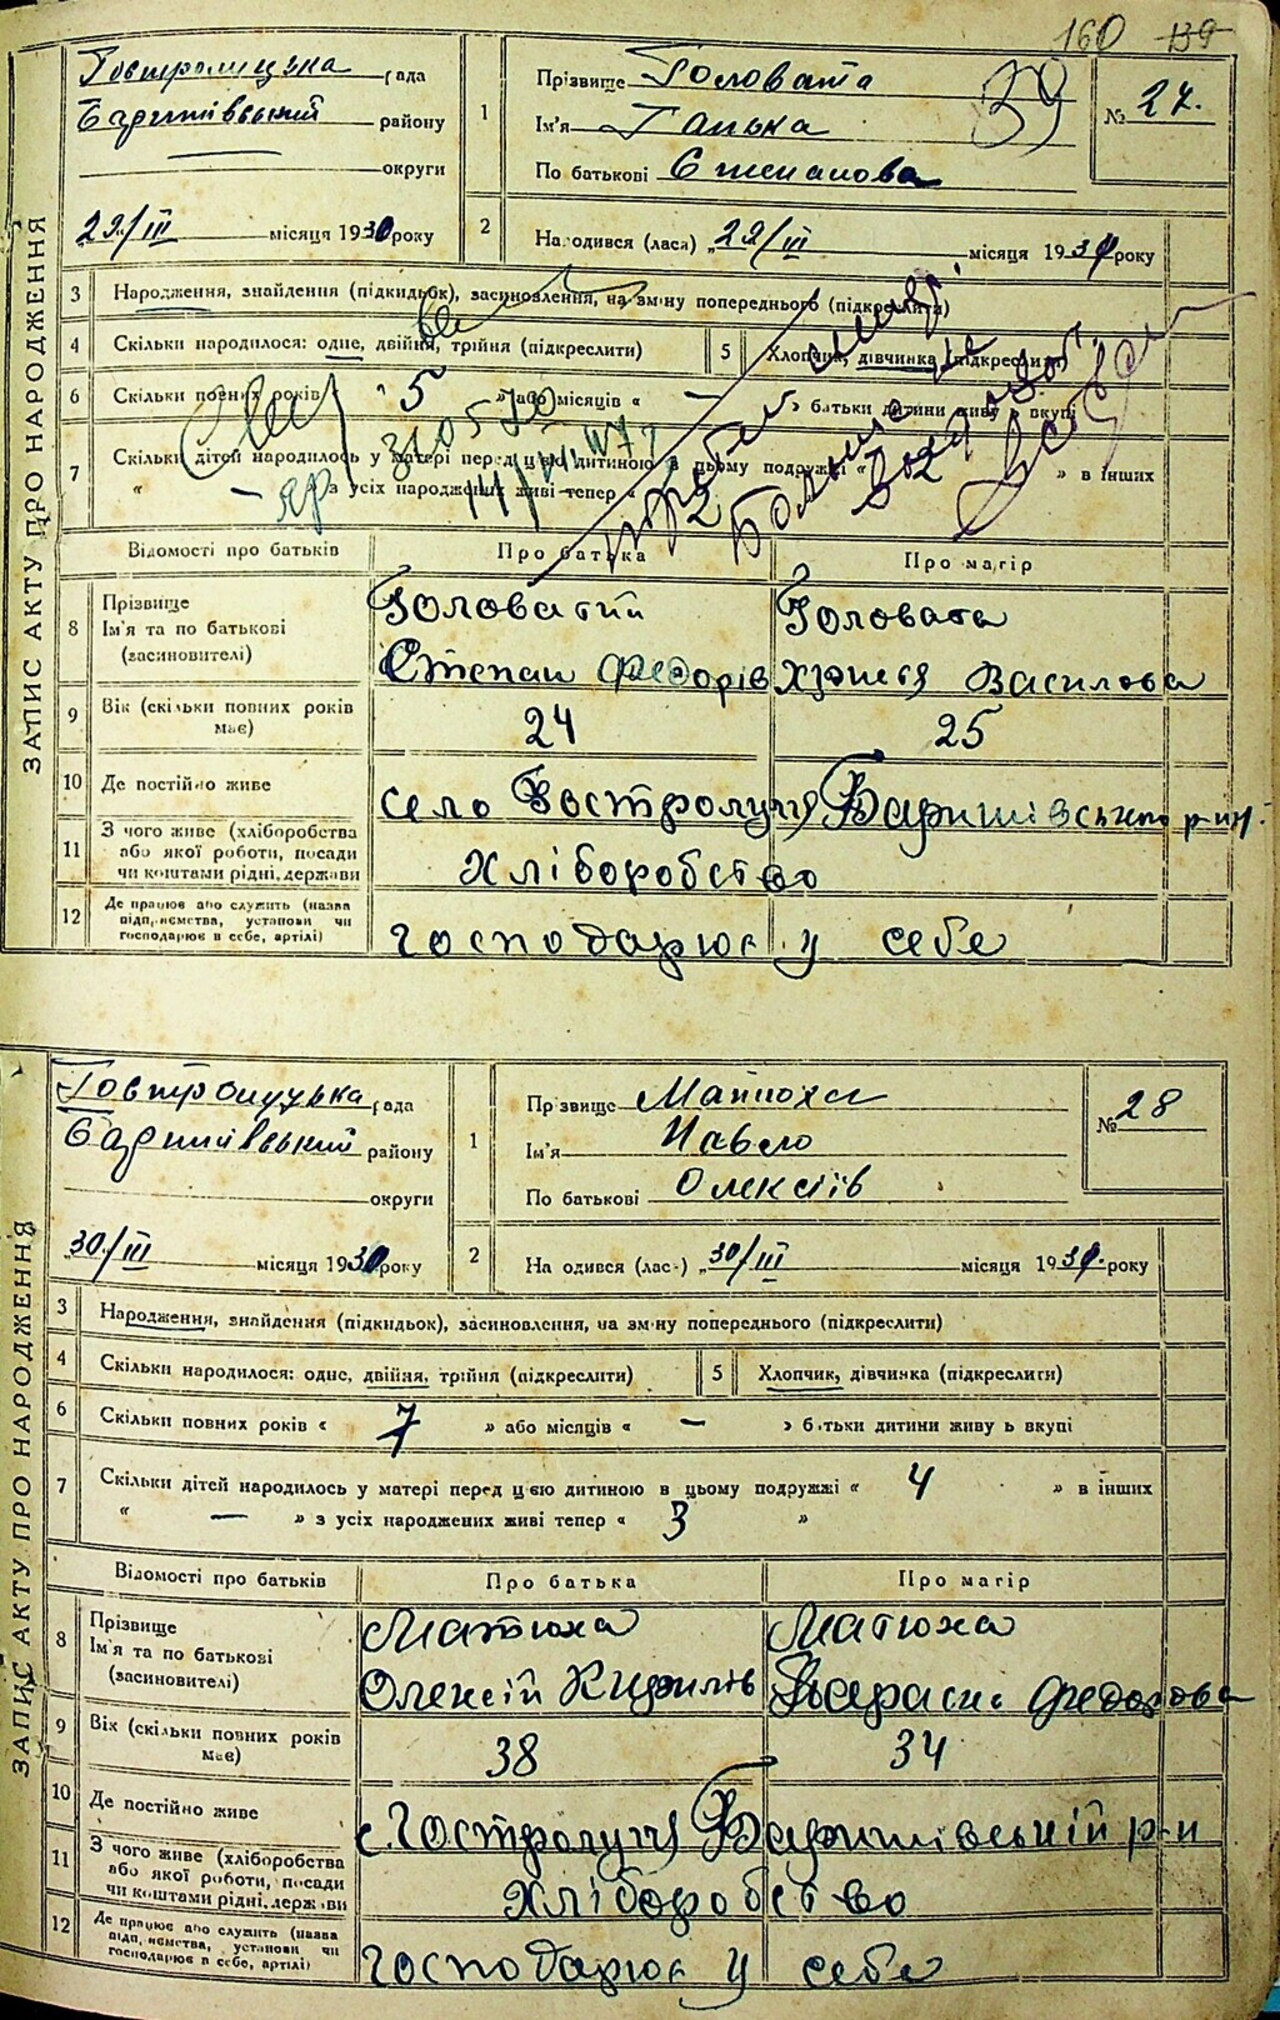 160 139
Гостролуцька рада
Баришівський району
округи
29/III місяця 1930 року
1
Прізвище Головата
Ім'я Ганька
По батькові Степанова
39
№ 27.
2
Народився (лася) „29/III місяця 1930 року
ЗАПИС АКТУ ПРО НАРОДЖЕННЯ
3 Народження, знайдення (підкидьок), засиновлення, на зміну попереднього (підкреслити)
4 Скільки народилося: одне, двійня, трійня (підкреслити)
5 Хлопчик, дівчинка (підкреслити)
6 Скільки повних років „ 5 " або місяців « — » батьки дитини живуть вкупі
7 Скільки дітей народилось у матері перед цією дитиною в цьому подружжі « 2 » в інших
« — » з усіх народжених живі тепер « 2
Відомості про батьків Про батька Про матір
8 Прізвище
Ім'я та по батькові
(засиновителі)
Головатий Головата
Степан Федорів Христя Василова
9 Вік (скільки повних років має) 24 25
10 Де постійно живе село Гостролуччя Баришівського р-ну.
11 З чого живе (хліборобства
або якої роботи, посади
чи коштами рідні, держави
Хліборобство
12 Де працює або служить (назва
підприємства, установи чи
господарює в себе, артілі)
господарює у себе
Гостролуцька рада
Баришівський району
округи
30/III місяця 1930 року
1
Прізвище Матюха
Ім'я Павло
По батькові Олексіїв
№ 28
2
Народився (лась) „30/III місяця 1930. року
ЗАПИС АКТУ ПРО НАРОДЖЕННЯ
3 Народження, знайдення (підкидьок), засиновлення, на зміну попереднього (підкреслити)
4 Скільки народилося: одне, двійня, трійня (підкреслити)
5 Хлопчик, дівчинка (підкреслити)
6 Скільки повних років « 7 » або місяців « — » батьки дитини живуть вкупі
7 Скільки дітей народилось у матері перед цією дитиною в цьому подружжі « 4 » в інших
« — » з усіх народжених живі тепер « 3 »
Відомості про батьків Про батька Про матір
8 Прізвище
Ім'я та по батькові
(засиновителі)
Матюха Матюха
Олексій Кирилів Параска Федорова
9 Вік (скільки повних років має) 38 34
10 Де постійно живе с. Гостролуччя Баришівський р-н
11 З чого живе (хліборобства
або якої роботи, посади
чи коштами рідні, держави
Хліборобство
12 Де працює або служить (назва
підприємства, установи чи
господарює в себе, артілі)
господарює у себе